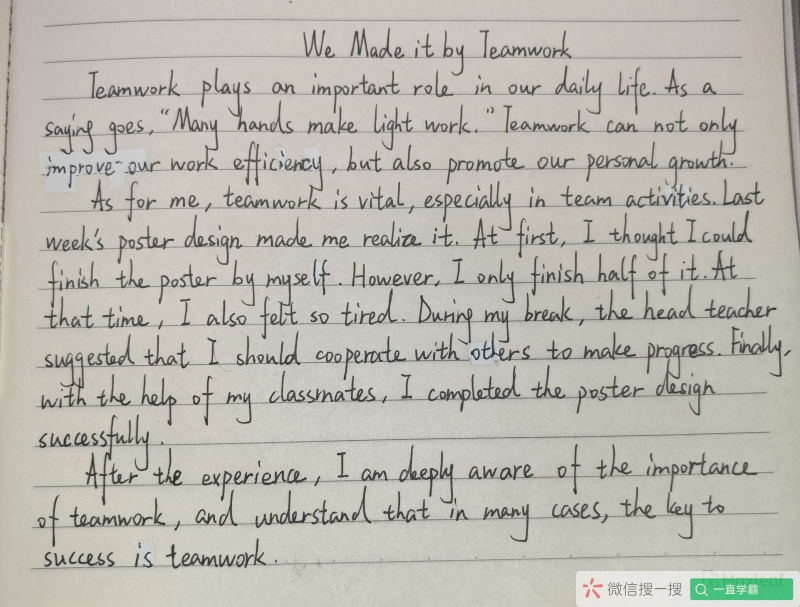 We Made it by Teamwork
Teamwork plays an important role in our daily life. As a
saying goes, "Many hands make light work." Teamwork can not only
improve our work efficiency, but also promote our personal growth.
As for me, teamwork is vital, especially in team activities. Last
week's poster design made me realize it. At first, I thought I could
finish the poster by myself. However, I only finish half of it. At
that time, I also felt so tired. During my break, the head teacher
suggested that I should cooperate with others to make progress. Finally,
with the help of my classmates, I completed the poster design
successfully.
After the experience, I am deeply aware of the importance
of teamwork, and understand that in many cases, the key to
success is teamwork.
微信搜一搜 一直学霸